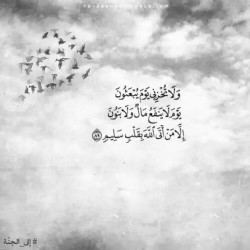 وَلَا تُخْزِنِي يَوْمَ يُبْعَثُونَ
يَوْمَ لَا يَنفَعُ مَالٌ وَلَا بَنُونَ
إِلَّا مَنْ أَتَى اللَّهَ بِقَلْبٍ سَلِيمٍ ﴿٨٩﴾
# إلى_الجنّة